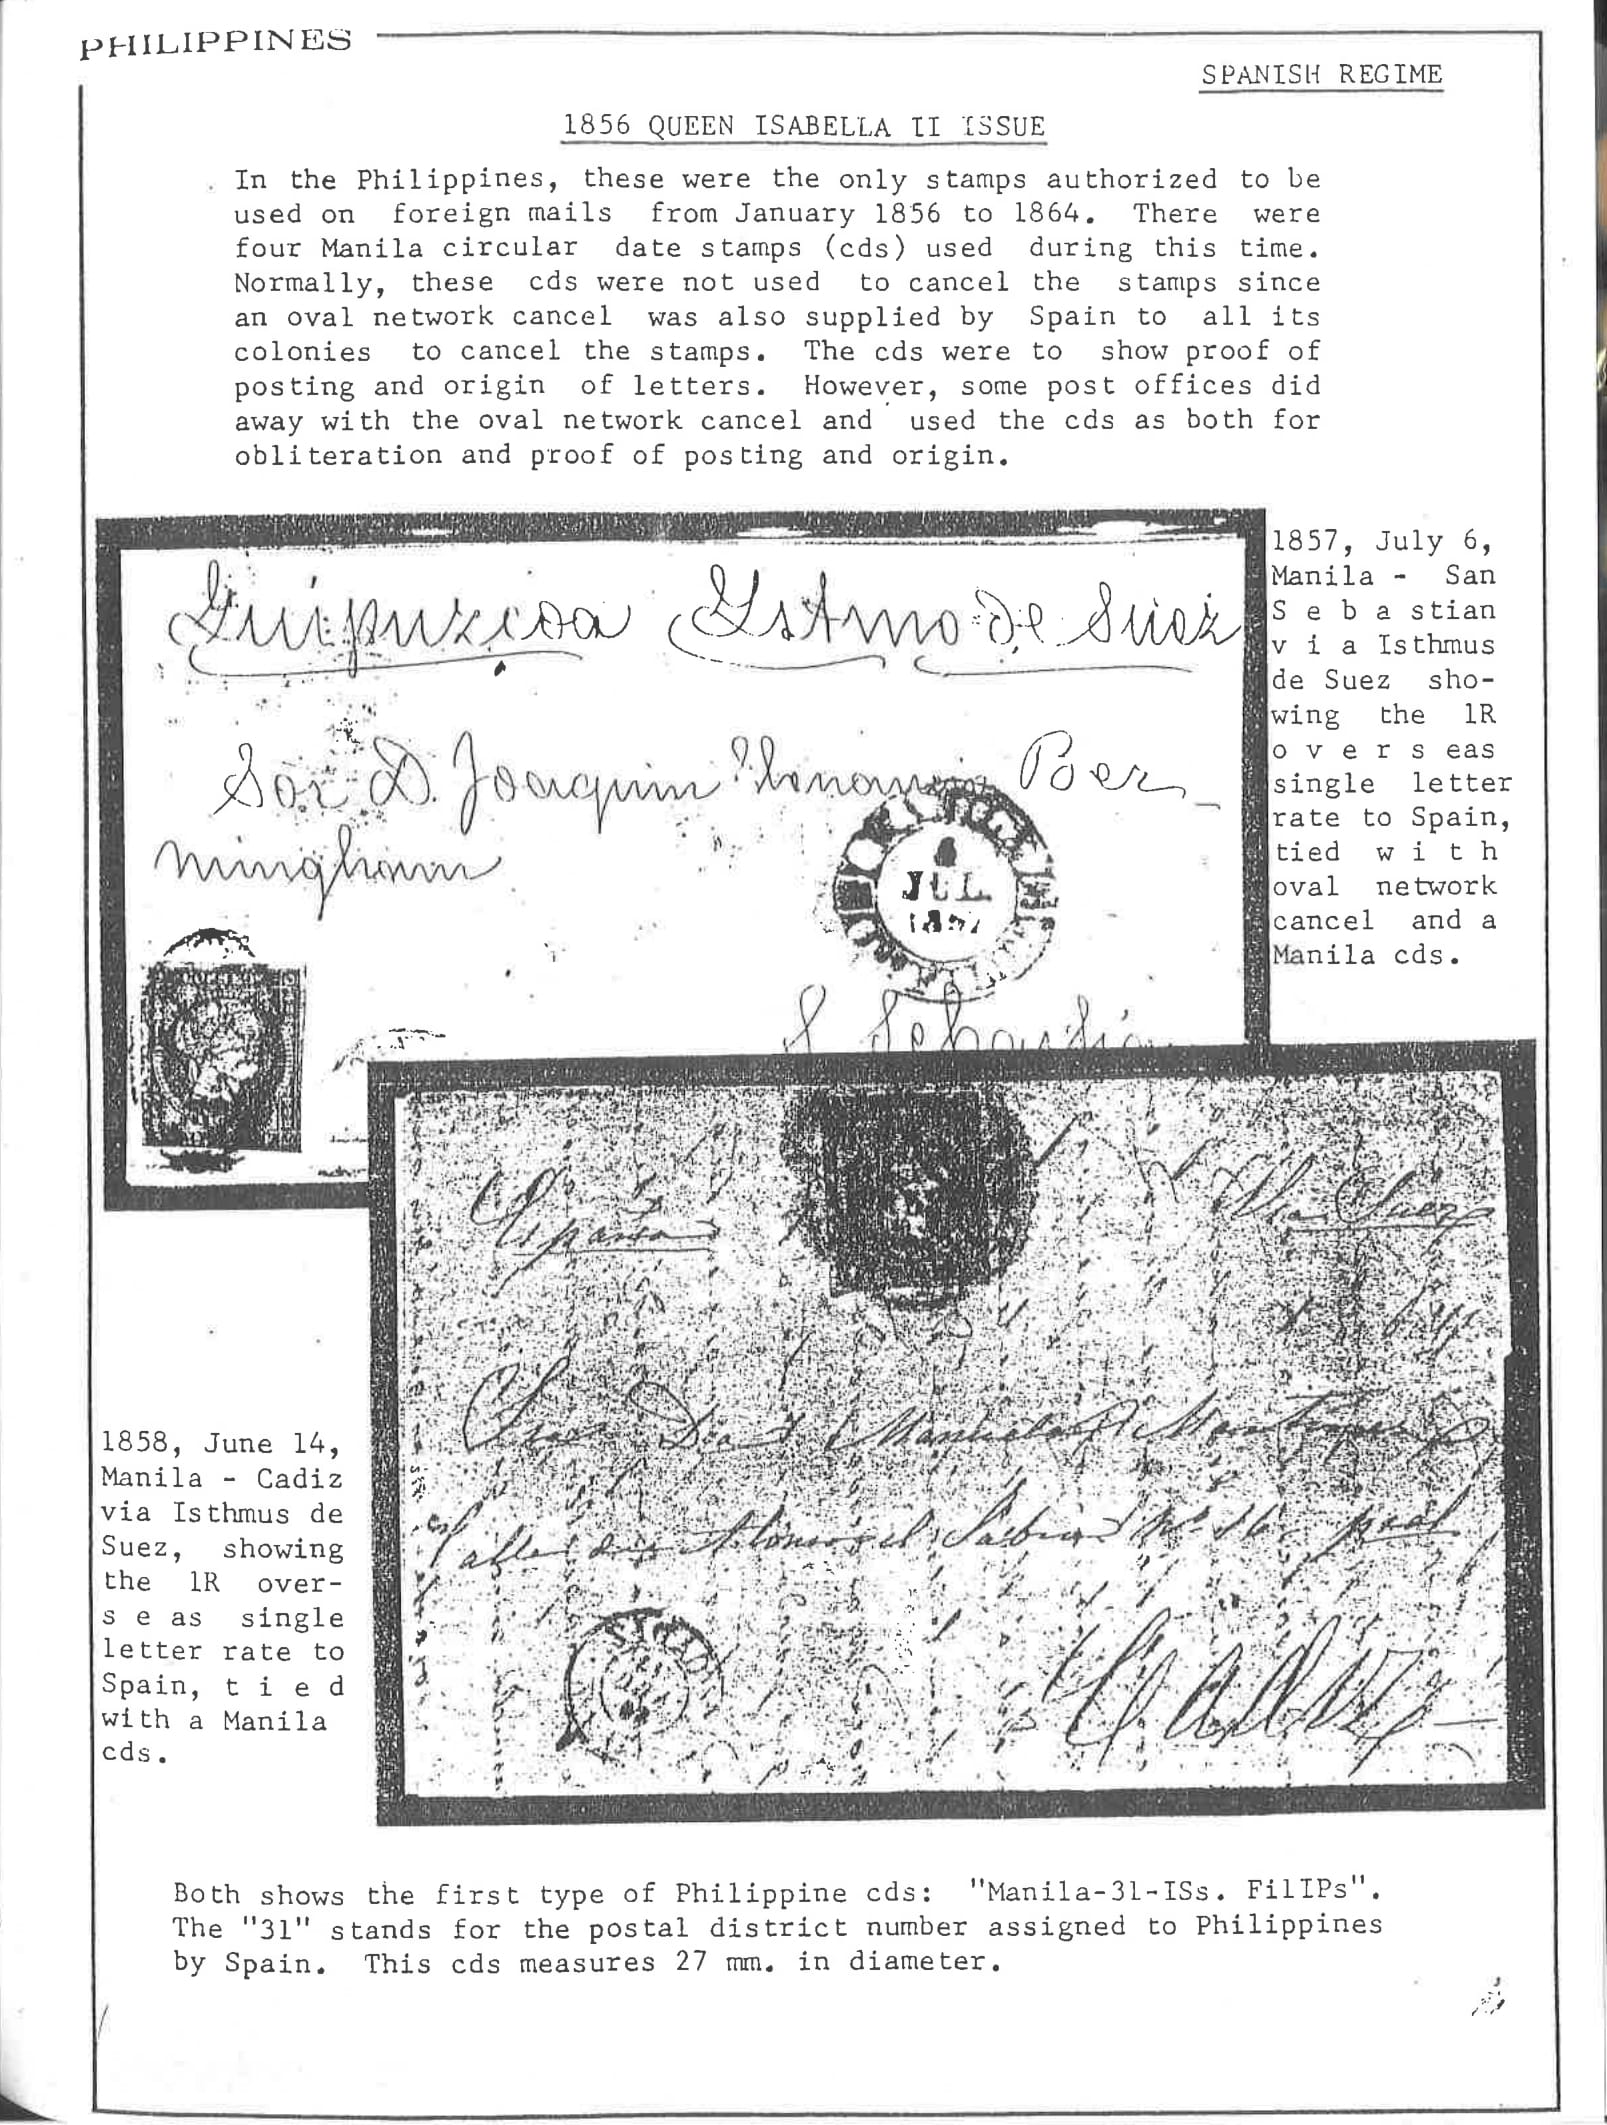 PHILIPPINES
SPANISH REGIME
1856 QUEEN ISABELLA II ISSUE
In the Philippines, these were the only stamps authorized to be
used on foreign mails from January 1856 to 1864. There were
four Manila circular date stamps (cds) used during this time.
Normally, these cds were not used to cancel the stamps since
an oval network cancel was also supplied by Spain to all its
colonies to cancel the stamps. The cds were to show proof of
posting and origin of letters. However, some post offices did
away with the oval network cancel and used the cds as both for
obliteration and proof of posting and origin.
Guipuzcoa Ystmo de Suez
Sor. D. Joaquin Ber
mingham
JUL
1857
S. Sebastian
1857, July 6,
Manila - San
Sebastian
via Isthmus
de Suez sho-
wing the 1R
overseas
single letter
rate to Spain,
tied with
oval network
cancel and a
Manila cds.
España
Via Suez
Cadiz
1858, June 14,
Manila - Cadiz
via Isthmus de
Suez, showing
the 1R over-
seas single
letter rate to
Spain, tied
with a Manila
cds.
Both shows the first type of Philippine cds: "Manila-31-ISs. FilIPs".
The "31" stands for the postal district number assigned to Philippines
by Spain. This cds measures 27 mm. in diameter.